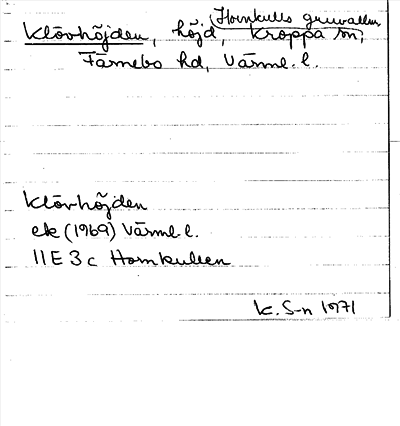 Hornkulls gruvallm
Klövhöjden, höjd, Kroppa sn,
Färnebo hd, Värml. l.
Klövhöjden
ek (1969) Värml. l.
11E 3c Hornkullen
K. S-n 1971